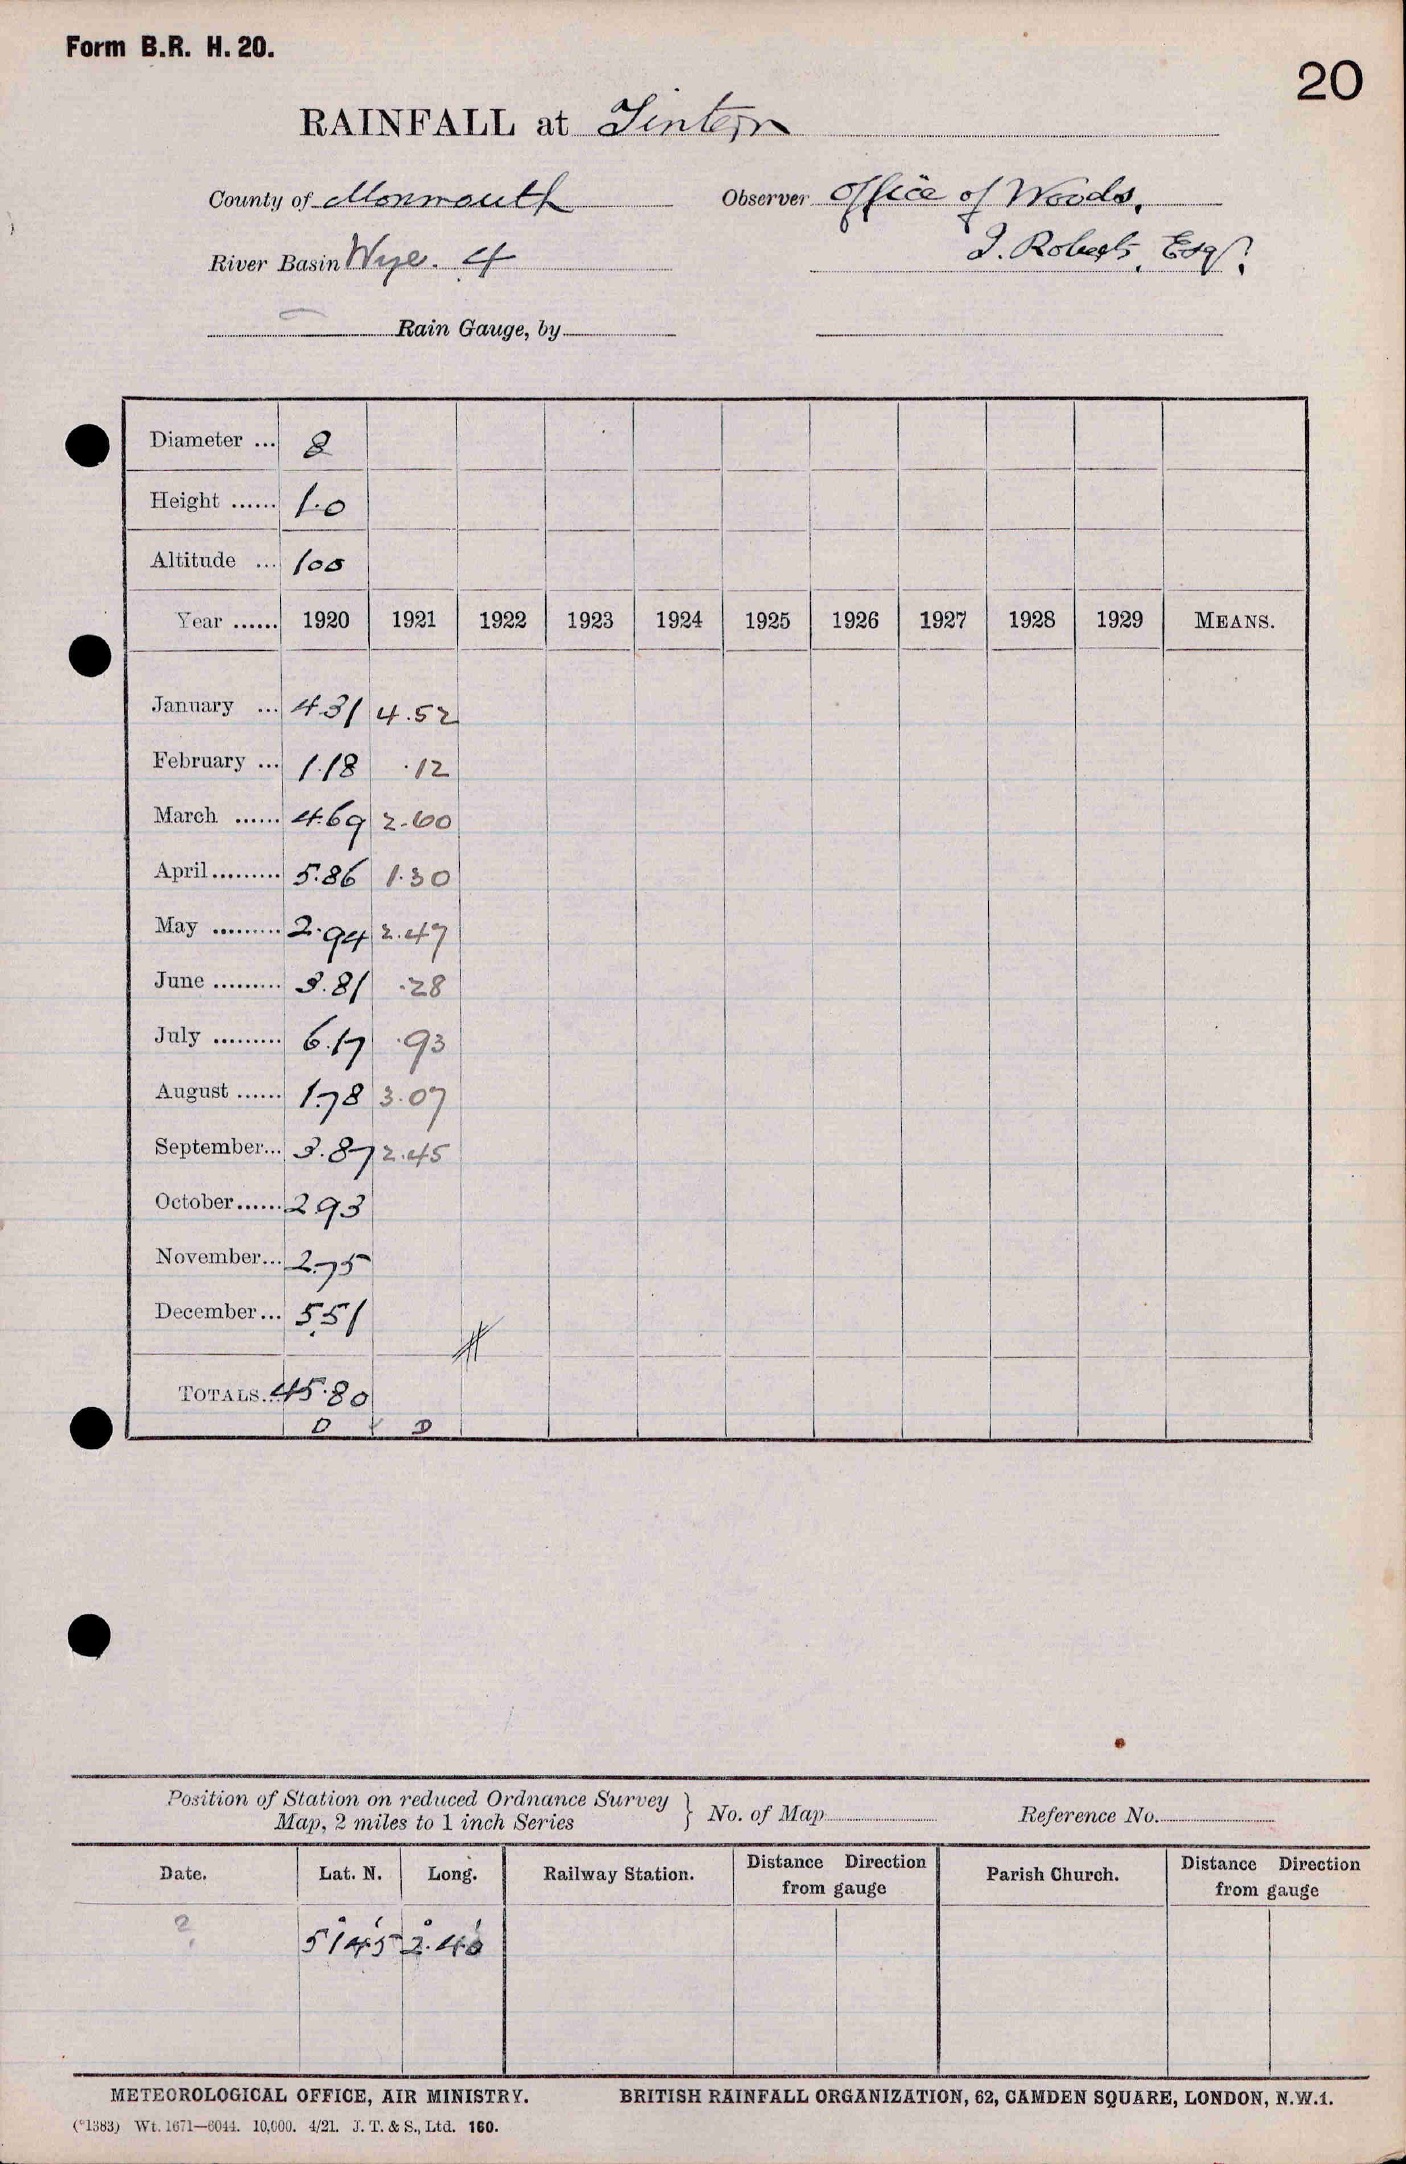 Form B.R. H. 20.
20
RAINFALL at Tintern
County of Monmouth Observer Office of Woods,
River Basin Wye. 4 Roberts, Esq.
Rain Gauge, by
Diameter ... 8
Height ...... 1.0
Altitude ... 100
Year ...... 1920 1921 1922 1923 1924 1925 1926 1927 1928 1929 MEANS.
January ... 4.31 4.52
February ... 1.18 .12
March ...... 4.69 2.60
April......... 5.86 1.30
May ......... 2.94 2.47
June ......... 3.81 .28
July ......... 6.17 .93
August ...... 1.78 3.07
September... 3.87 2.45
October...... 2.93
November... 2.75
December... 5.51
TOTALS... 45.80
D D
Position of Station on reduced Ordnance Survey
Map, 2 miles to 1 inch Series } No. of Map Reference No.
Date. Lat. N. Long. Railway Station. Distance Direction from gauge Parish Church. Distance Direction from gauge
? 51° 45' 2° 40'
METEOROLOGICAL OFFICE, AIR MINISTRY. BRITISH RAINFALL ORGANIZATION, 62, CAMDEN SQUARE, LONDON, N.W.1.
(°1383) Wt. 1671—6044. 10,000. 4/21. J. T. & S., Ltd. 160.